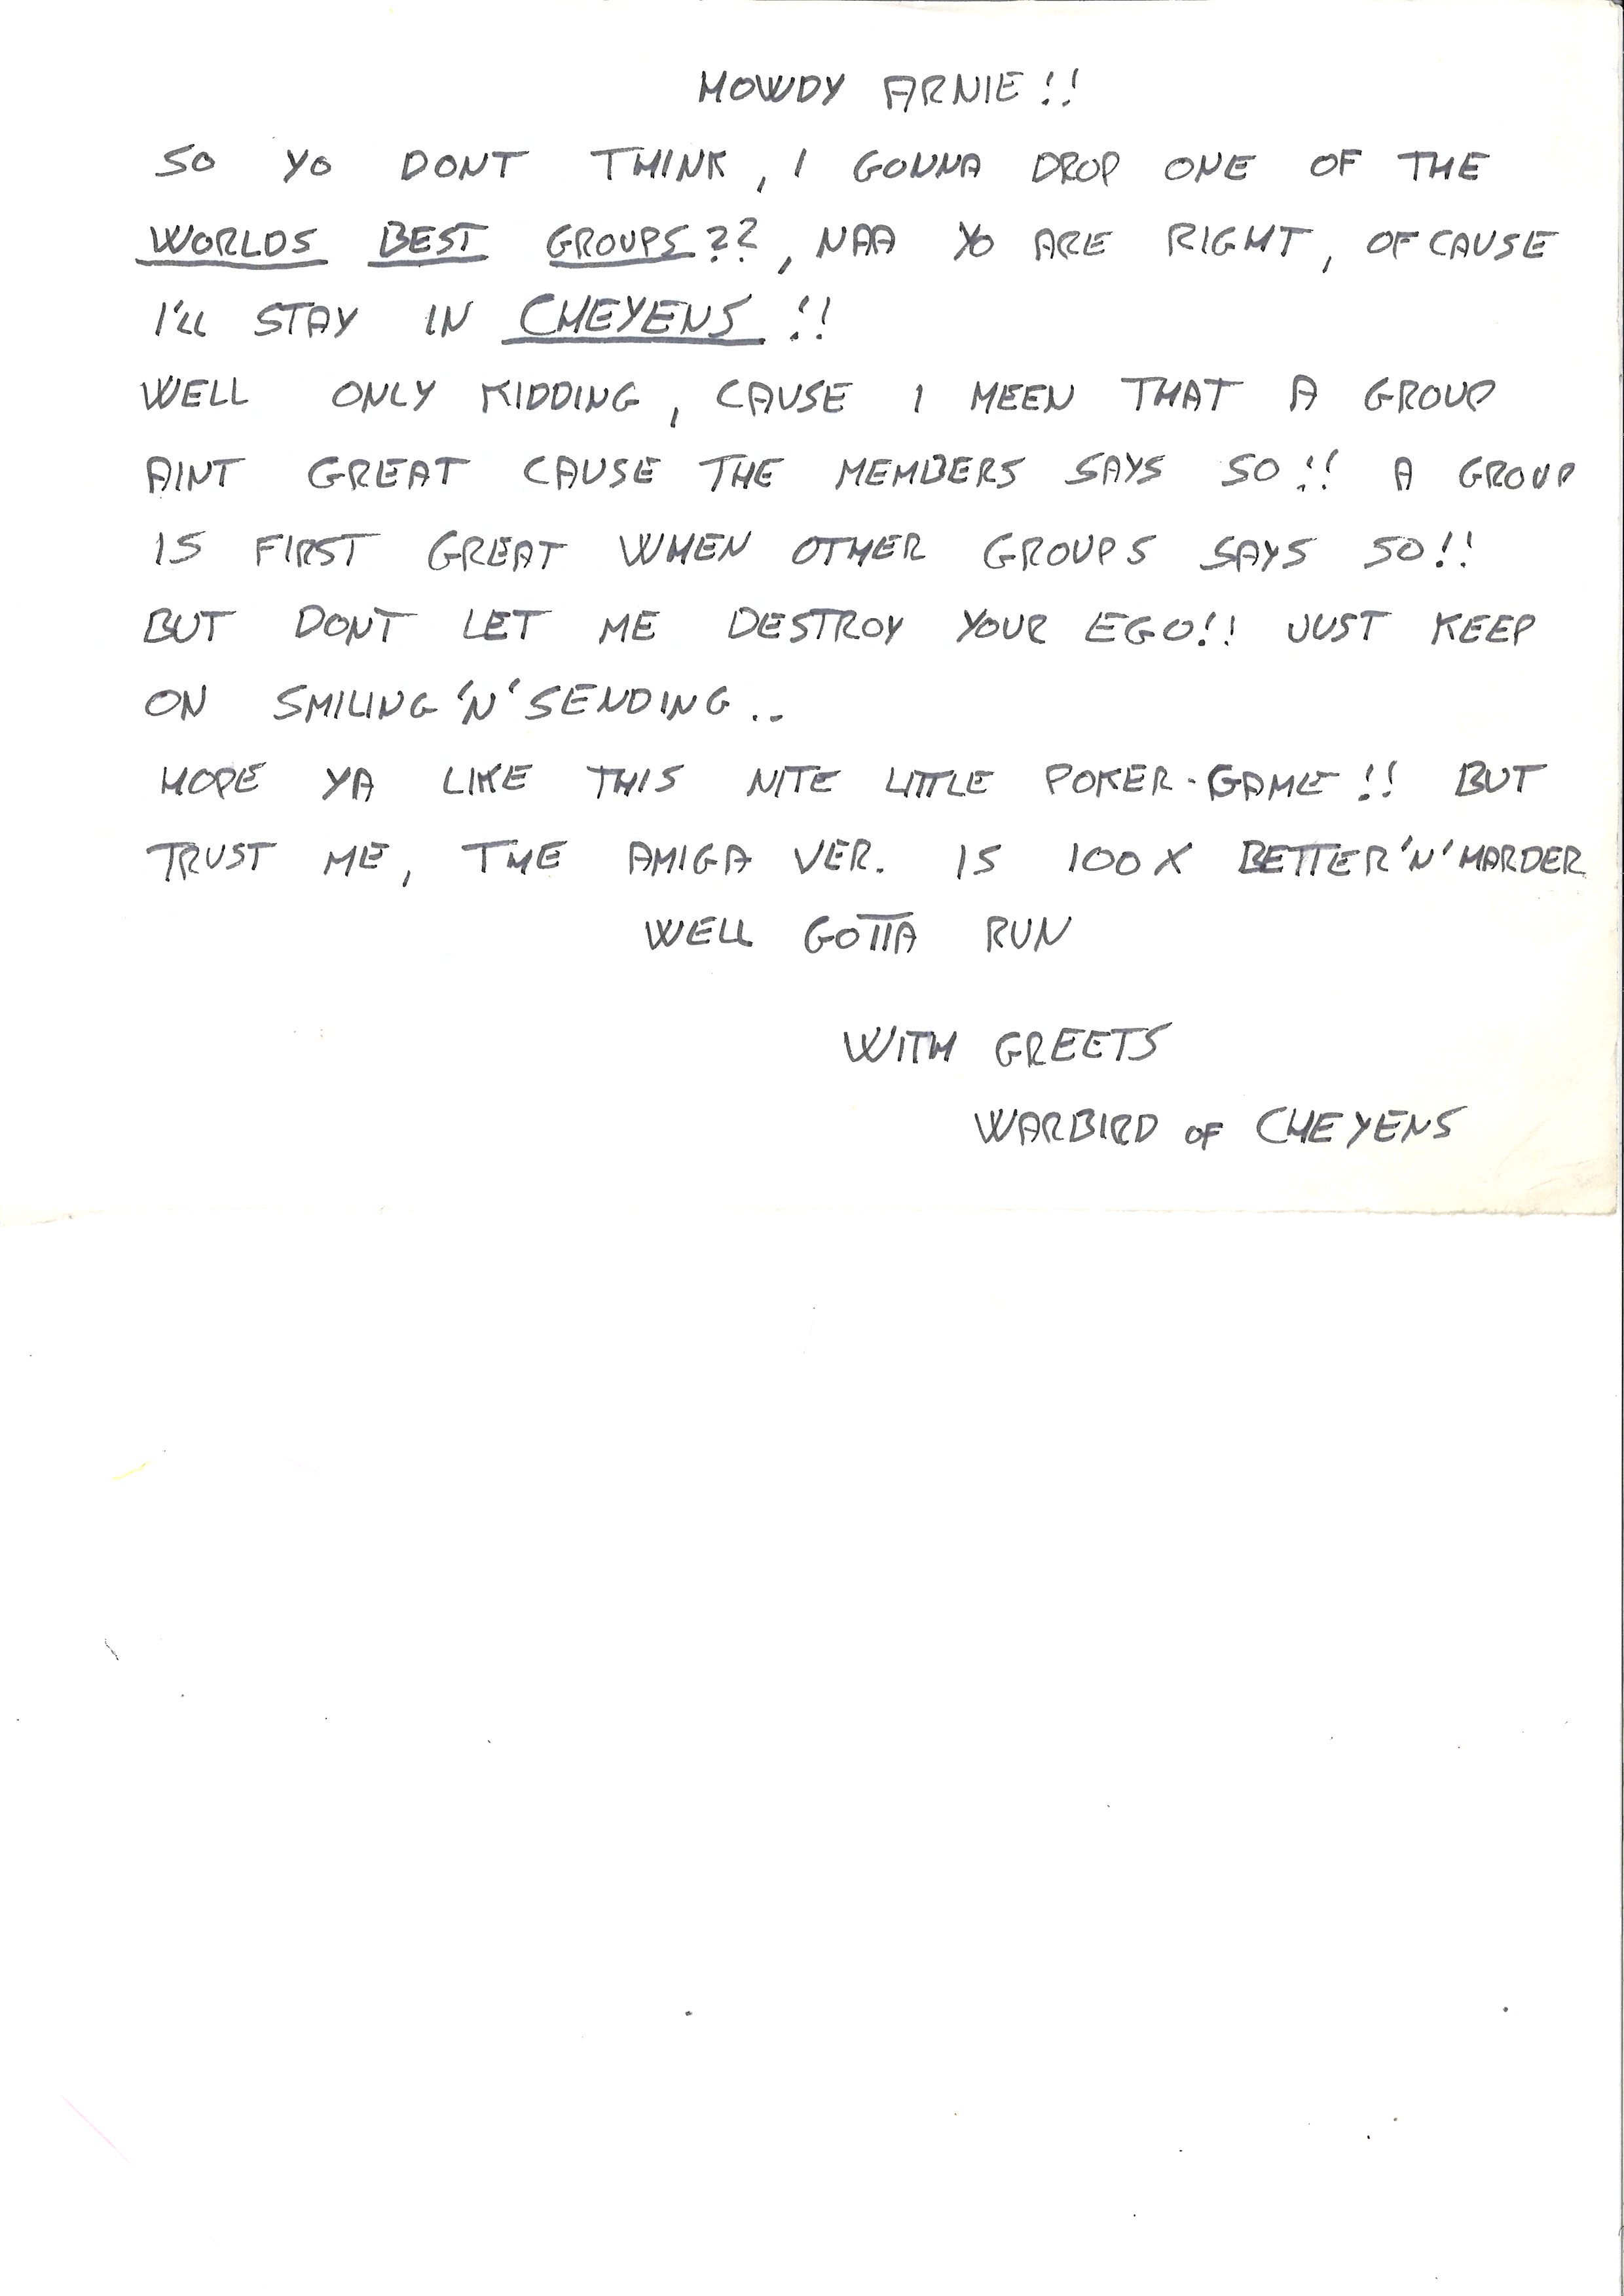 HOWDY ARNIE!!
SO YO DONT THINK, I GONNA DROP ONE OF THE
WORLDS BEST GROUPS??, NAA YO ARE RIGHT, OFCAUSE
I'LL STAY IN CHEYENS!!
WELL ONLY KIDDING, CAUSE I MEEN THAT A GROUP
AINT GREAT CAUSE THE MEMBERS SAYS SO!! A GROUP
IS FIRST GREAT WHEN OTHER GROUPS SAYS SO!!
BUT DON'T LET ME DESTROY YOUR EGO!! JUST KEEP
ON SMILING'N'SENDING..
HOPE YA LIKE THIS NITE LITTLE POKER-GAME!! BUT
TRUST ME, THE AMIGA VER. IS 100X BETTER'N'HARDER
WELL GOTTA RUN
WITH GREETS
WARBIRD OF CHEYENS